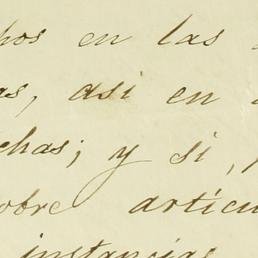 hos en las
as, asi en
chas; y si,
obre articu
instancias